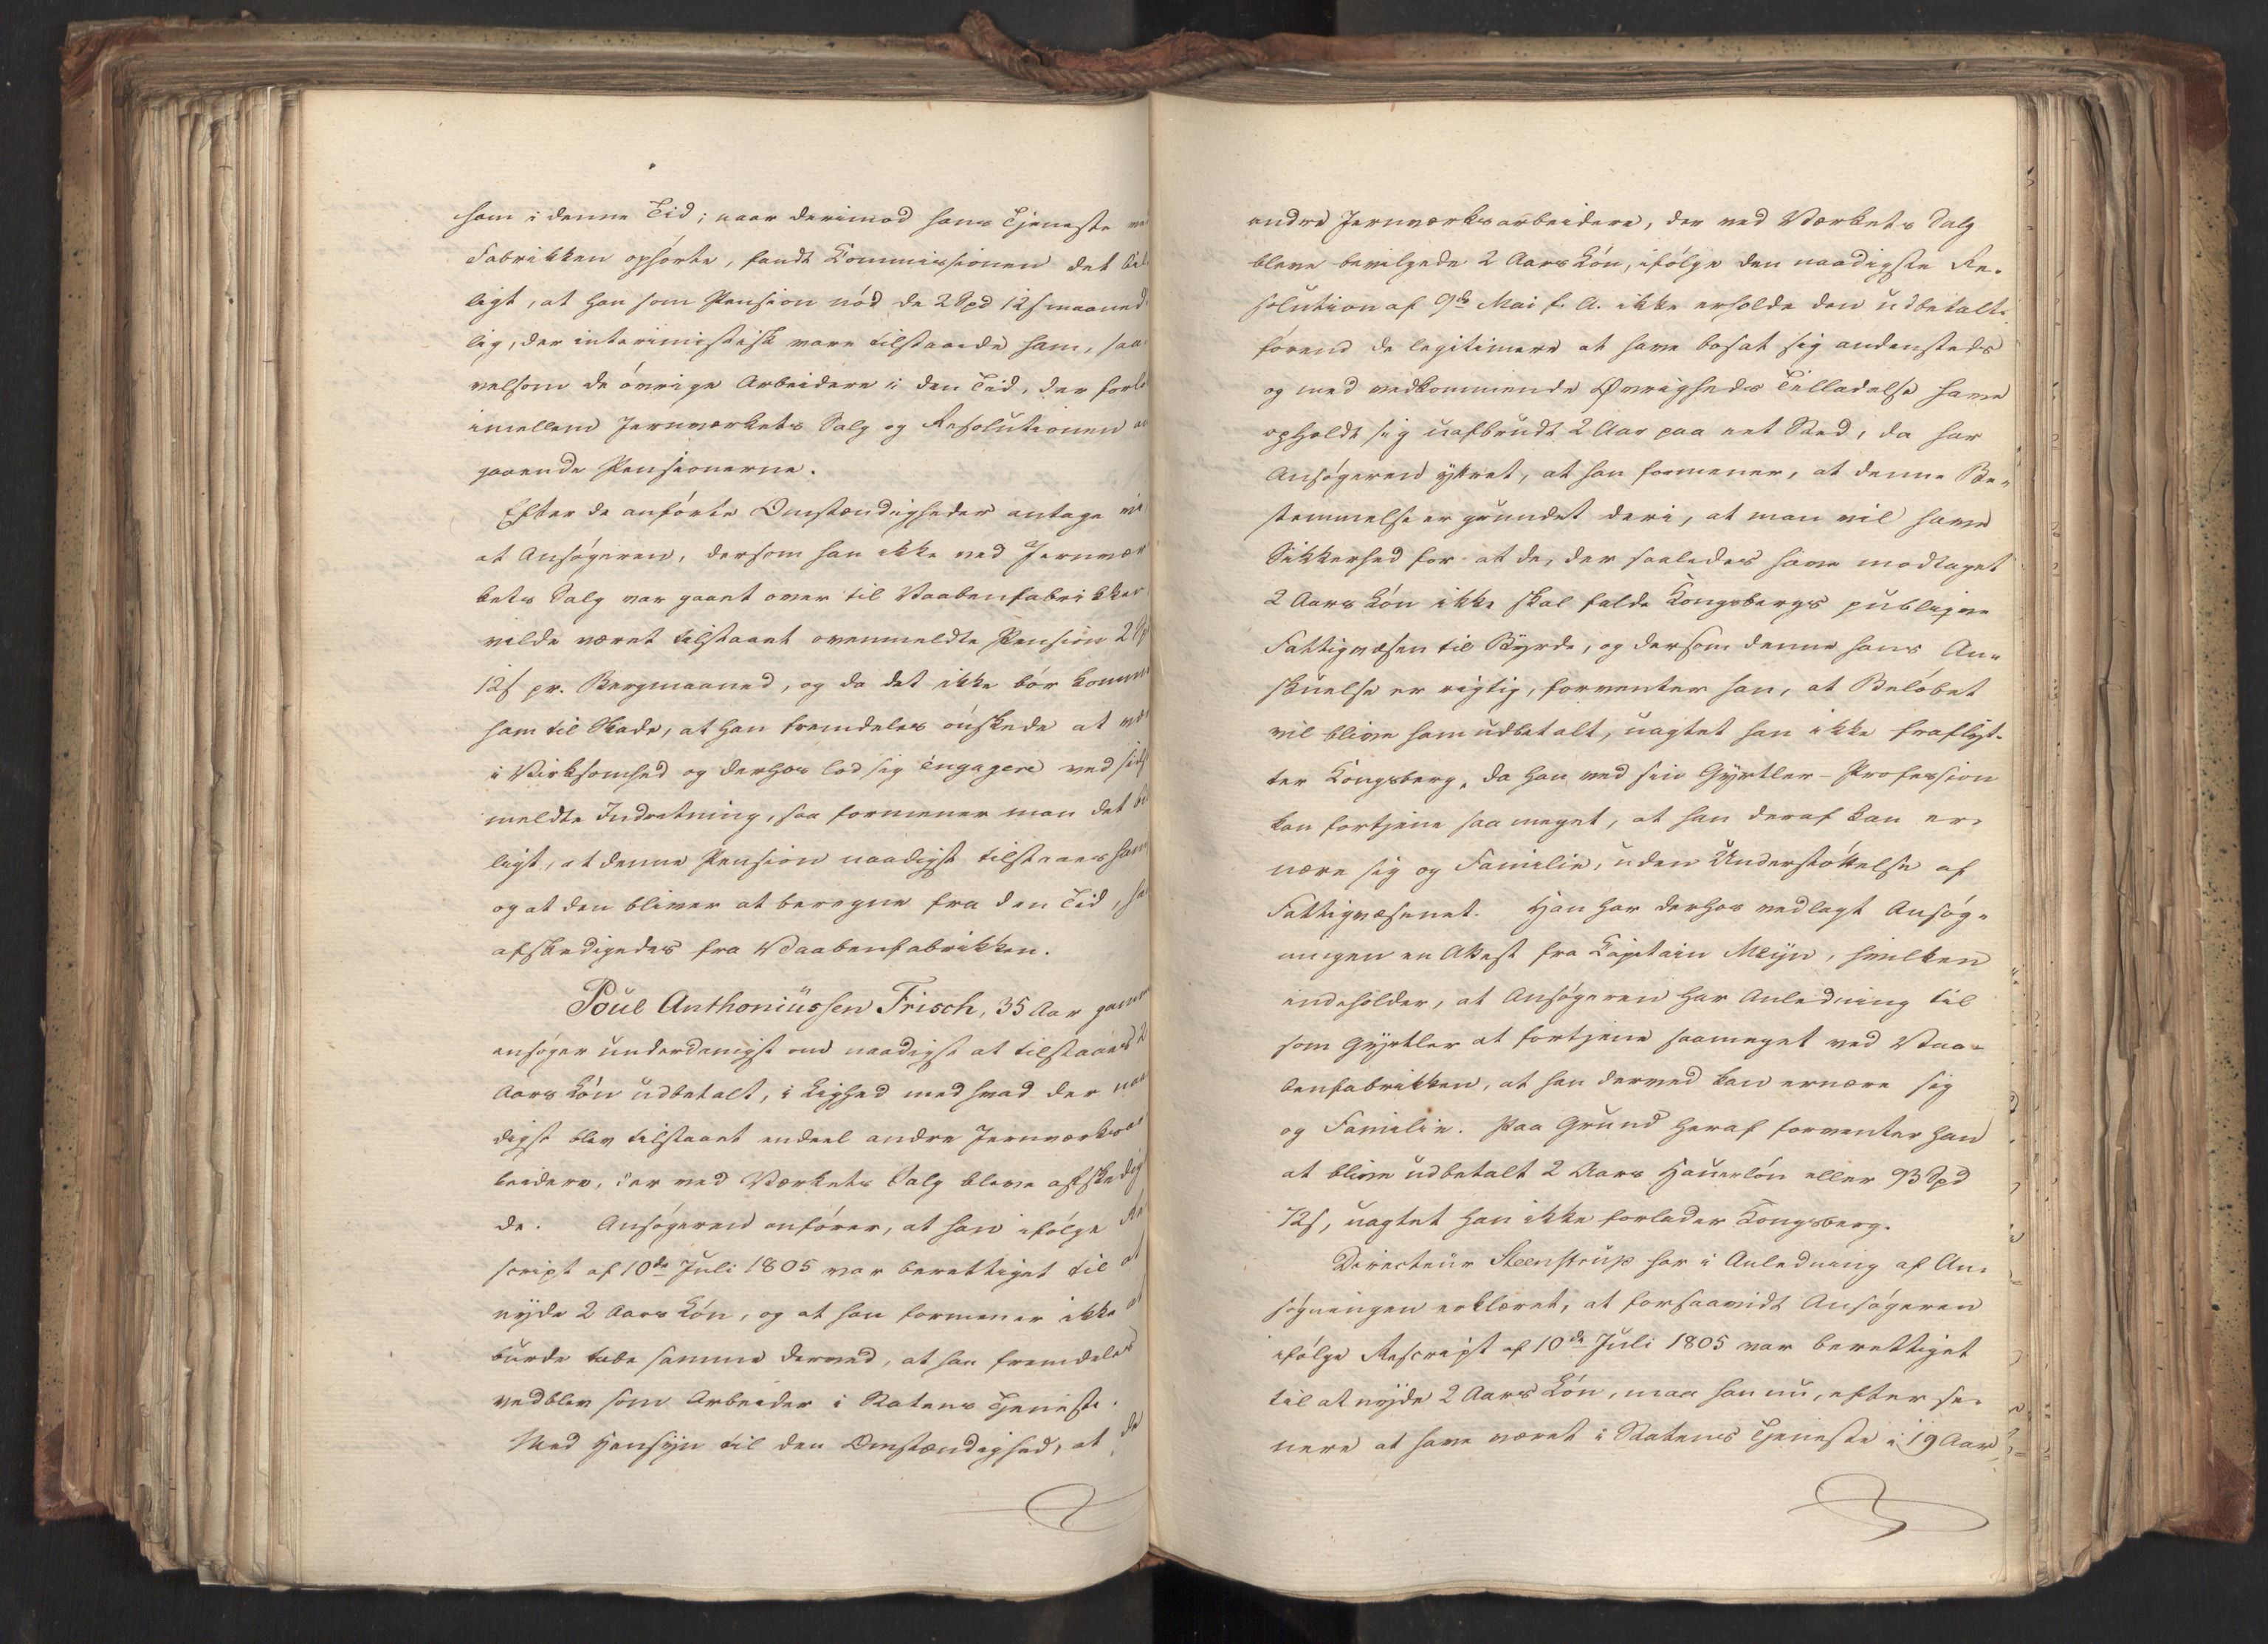 ham i denne Tid; naar derimod hans Tjeneste ved
Fabrikken ophörte, fandt Kommissionen det bil
ligt, at han som Pension nöd de 2 Spd 12 s maaned
lig, der interimistisk vare tilstaaede ham, saa
velsom de övrige Arbeidere i den Tid, der forlöb
imellem Jernværkets Salg og Resolutionen an
gaaende Pensionerne.
Efter de anförte Omstændigheder antage vi,
at Ansögeren, dersom han ikke ved Jernvær
kets Salg var gaaet over til Vaabenfabrikken
vilde været tilstaaet ovenmeldte Pension 2 Spd
12 s pr. Bergmaaned, og da det ikke bör komme
ham til Skade, at han fremdeles önskede at være
i Virksomhed og derhos lod sig engagere ved sidst
meldte Indretning, saa formener man det bil
ligt, at denne Pension naadigst tilstaaes ham
og at den bliver at beregne fra den Tid, han
afskedigedes fra Vaabenfabrikken.
Poul Anthoniussen Frisch, 35 Aar gammel
ansöger underdanigst om naadigst at tilstaaes 2
Aars Lön udbetalt, i Lighed med hvad der naa
digst blev tilstaaet endeel andre Jernværksar
beidere, der ved Værkets Salg bleve afskedige
de. Ansögeren anförer, at han ifölge Re
script af 10de Juli 1805 var berettiget til at
nyde 2 Aars Lön, og at han formener ikke at
burde tabe samme derved, at han fremdeles
vedblev som Arbeider i Statens Tjeneste.
Med Hensyn til den Omstændighed, at de
andre Jernværksarbeidere, der ved Værkets Salg
bleve bevilgede 2 Aars Lön, ifölge den naadigste Re-
solution af 9de Mai f. A. ikke erholde den udbetalt
förend de legitimere at have bosat sig andensteds
og med vedkommende Øvrigheds Tilladelse have
opholdt sig uafbrudt 2 Aar paa eet Sted, da har
Ansögeren yttret, at han formener, at denne Be-
stemmelse er grundet deri, at man vil have
Sikkerhed for at de, der saaledes have modtaget
2 Aars Lön ikke skal falde Kongsbergs publiqve
Fattigvæsen til Byrde, og dersom denne hans An-
skuelse er rigtig, forventer han, at Belöbet
vil blive ham udbetalt, uagtet han ikke fraflyt-
ter Kongsberg, da han ved sin Gyrtler-Profession
kan fortjene saa meget, at han deraf kan er-
nære sig og Familie, uden Understöttelse af
Fattigvæsenet. Han har derhos vedlagt Ansög-
ningen en Attest fra Kapitain Meyn, hvilken
indeholder, at Ansögeren har Anledning til
som Gyrtler at fortjene saameget ved Vaa-
benfabrikken, at han derved kan ernære sig
og Familie. Paa Grund heraf forventer han
at blive udbetalt 2 Aars Hauerlön eller 93 Spd
72 s, uagtet han ikke forlader Kongsberg.
Directeur Steenstrup har i Anledning af An-
sögningen erklæret, at forsaavidt Ansögeren
ifölge Rescript af 10de Juli 1805 var berettiget
til at nyde 2 Aars Lön, maa han nu, efter se-
nere at have været i Statens Tjeneste i 19 Aar,